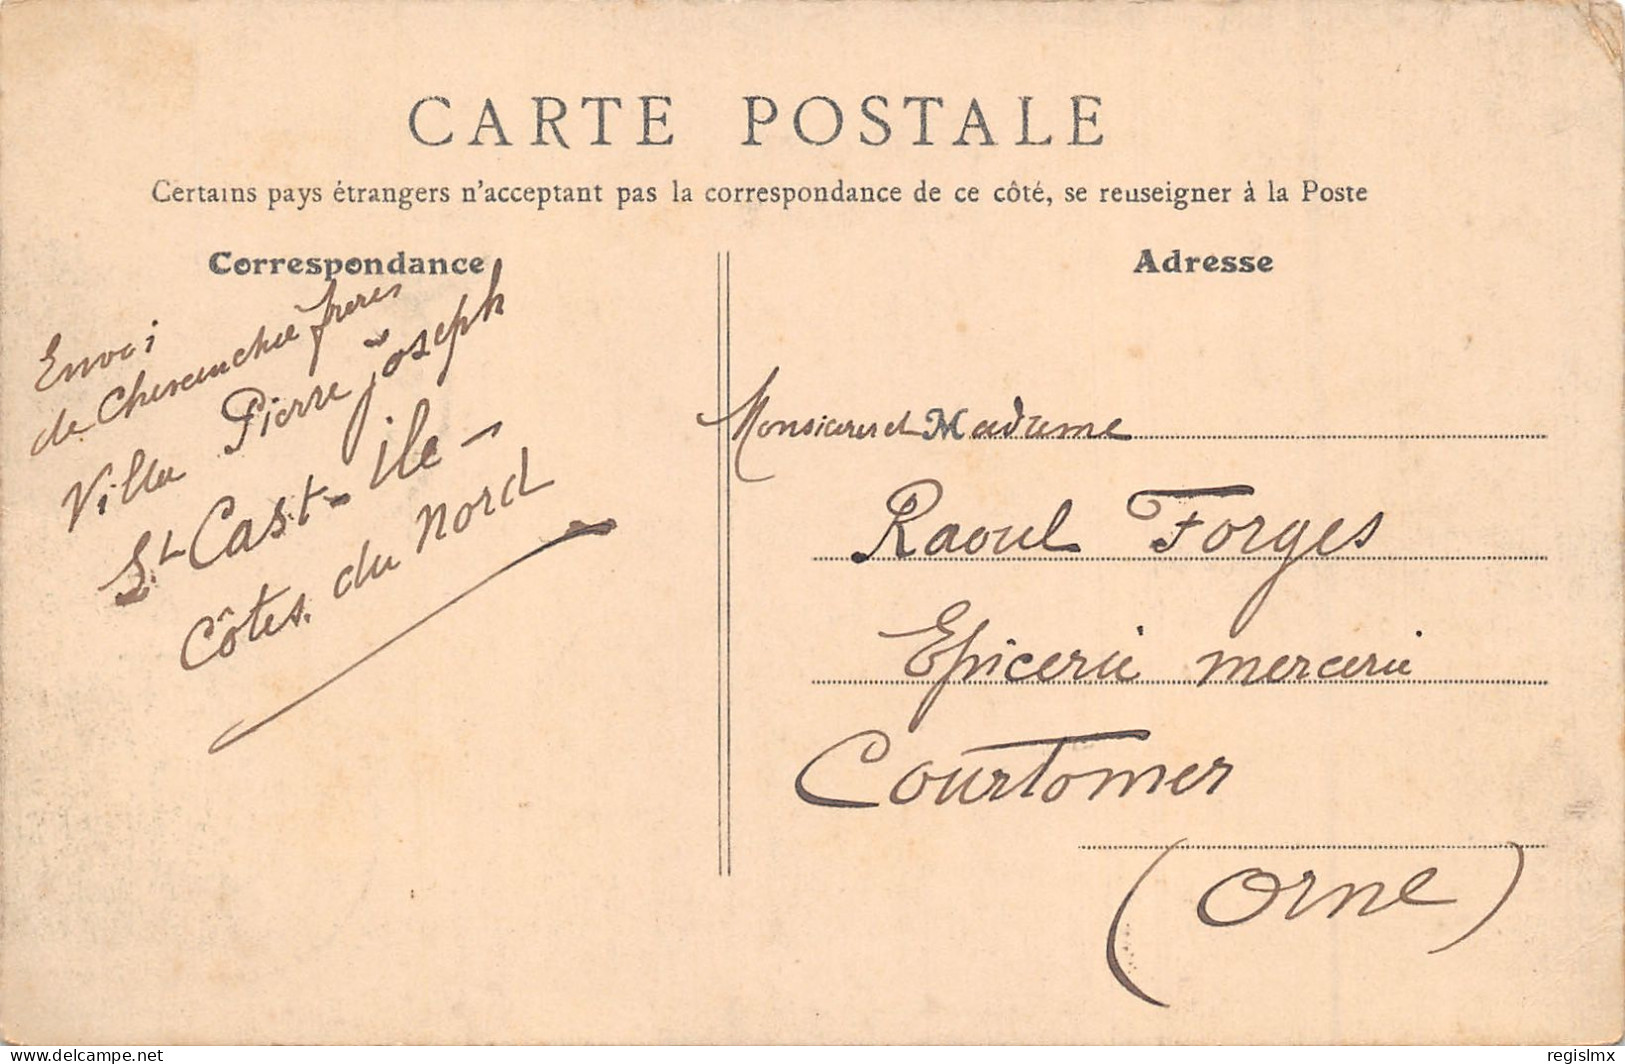 CARTE POSTALE
Certains pays étrangers n'acceptant pas la correspondance de ce côté, se reuseigner à la Poste
Correspondance
Envoi
de frères
Villa Pierre Joseph
St Cast-Ile-
Côtes du Nord
Adresse
Monsieur et Madame
Raoul Forges
Epicerie mercerie
Courtomer
(Orne)
www.delcampe.net
regislmx